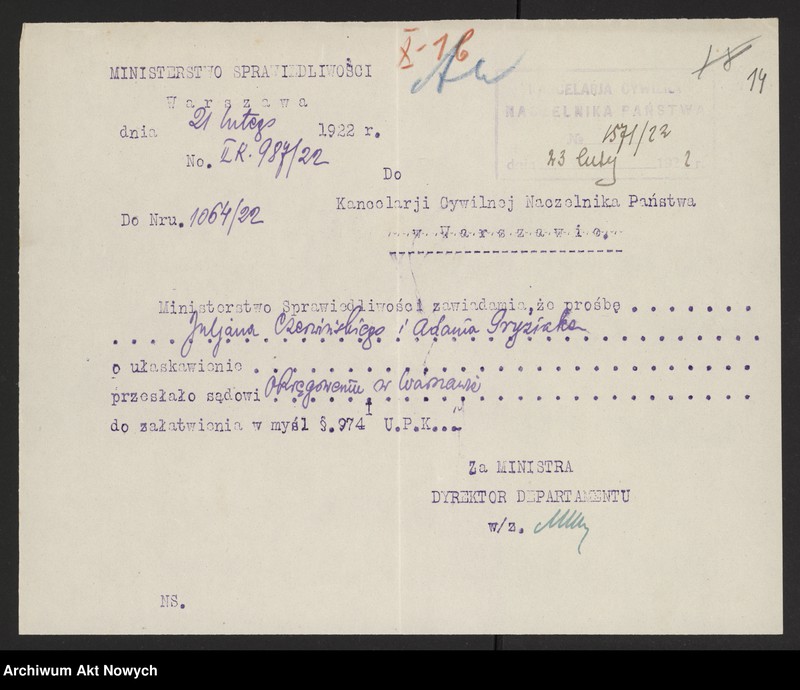 X-16
14
MINISTERSTWO SPRAWIEDLIWOŚCI
Warszawa
dnia 21 lutego 1922 r.
No. II K. 987/22
KANCELARJA CYWILNA
NACZELNIKA PAŃSTWA
No 1571/22
dnia 23 luty 1922 r.
Do
Kancelarji Cywilnej Naczelnika Państwa
w Warszawie.
Do Nru. 1064/22
Ministerstwo Sprawiedliwości zawiadamia, że prośbę
Juljana Czerwińskiego i Adama
o ułaskawienie
przesłało sądowi Okręgowemu w Warszawie
do załatwienia w myśl §.974 U.P.K.
Za MINISTRA
DYREKTOR DEPARTAMENTU
w/z.
NS.
Archiwum Akt Nowych